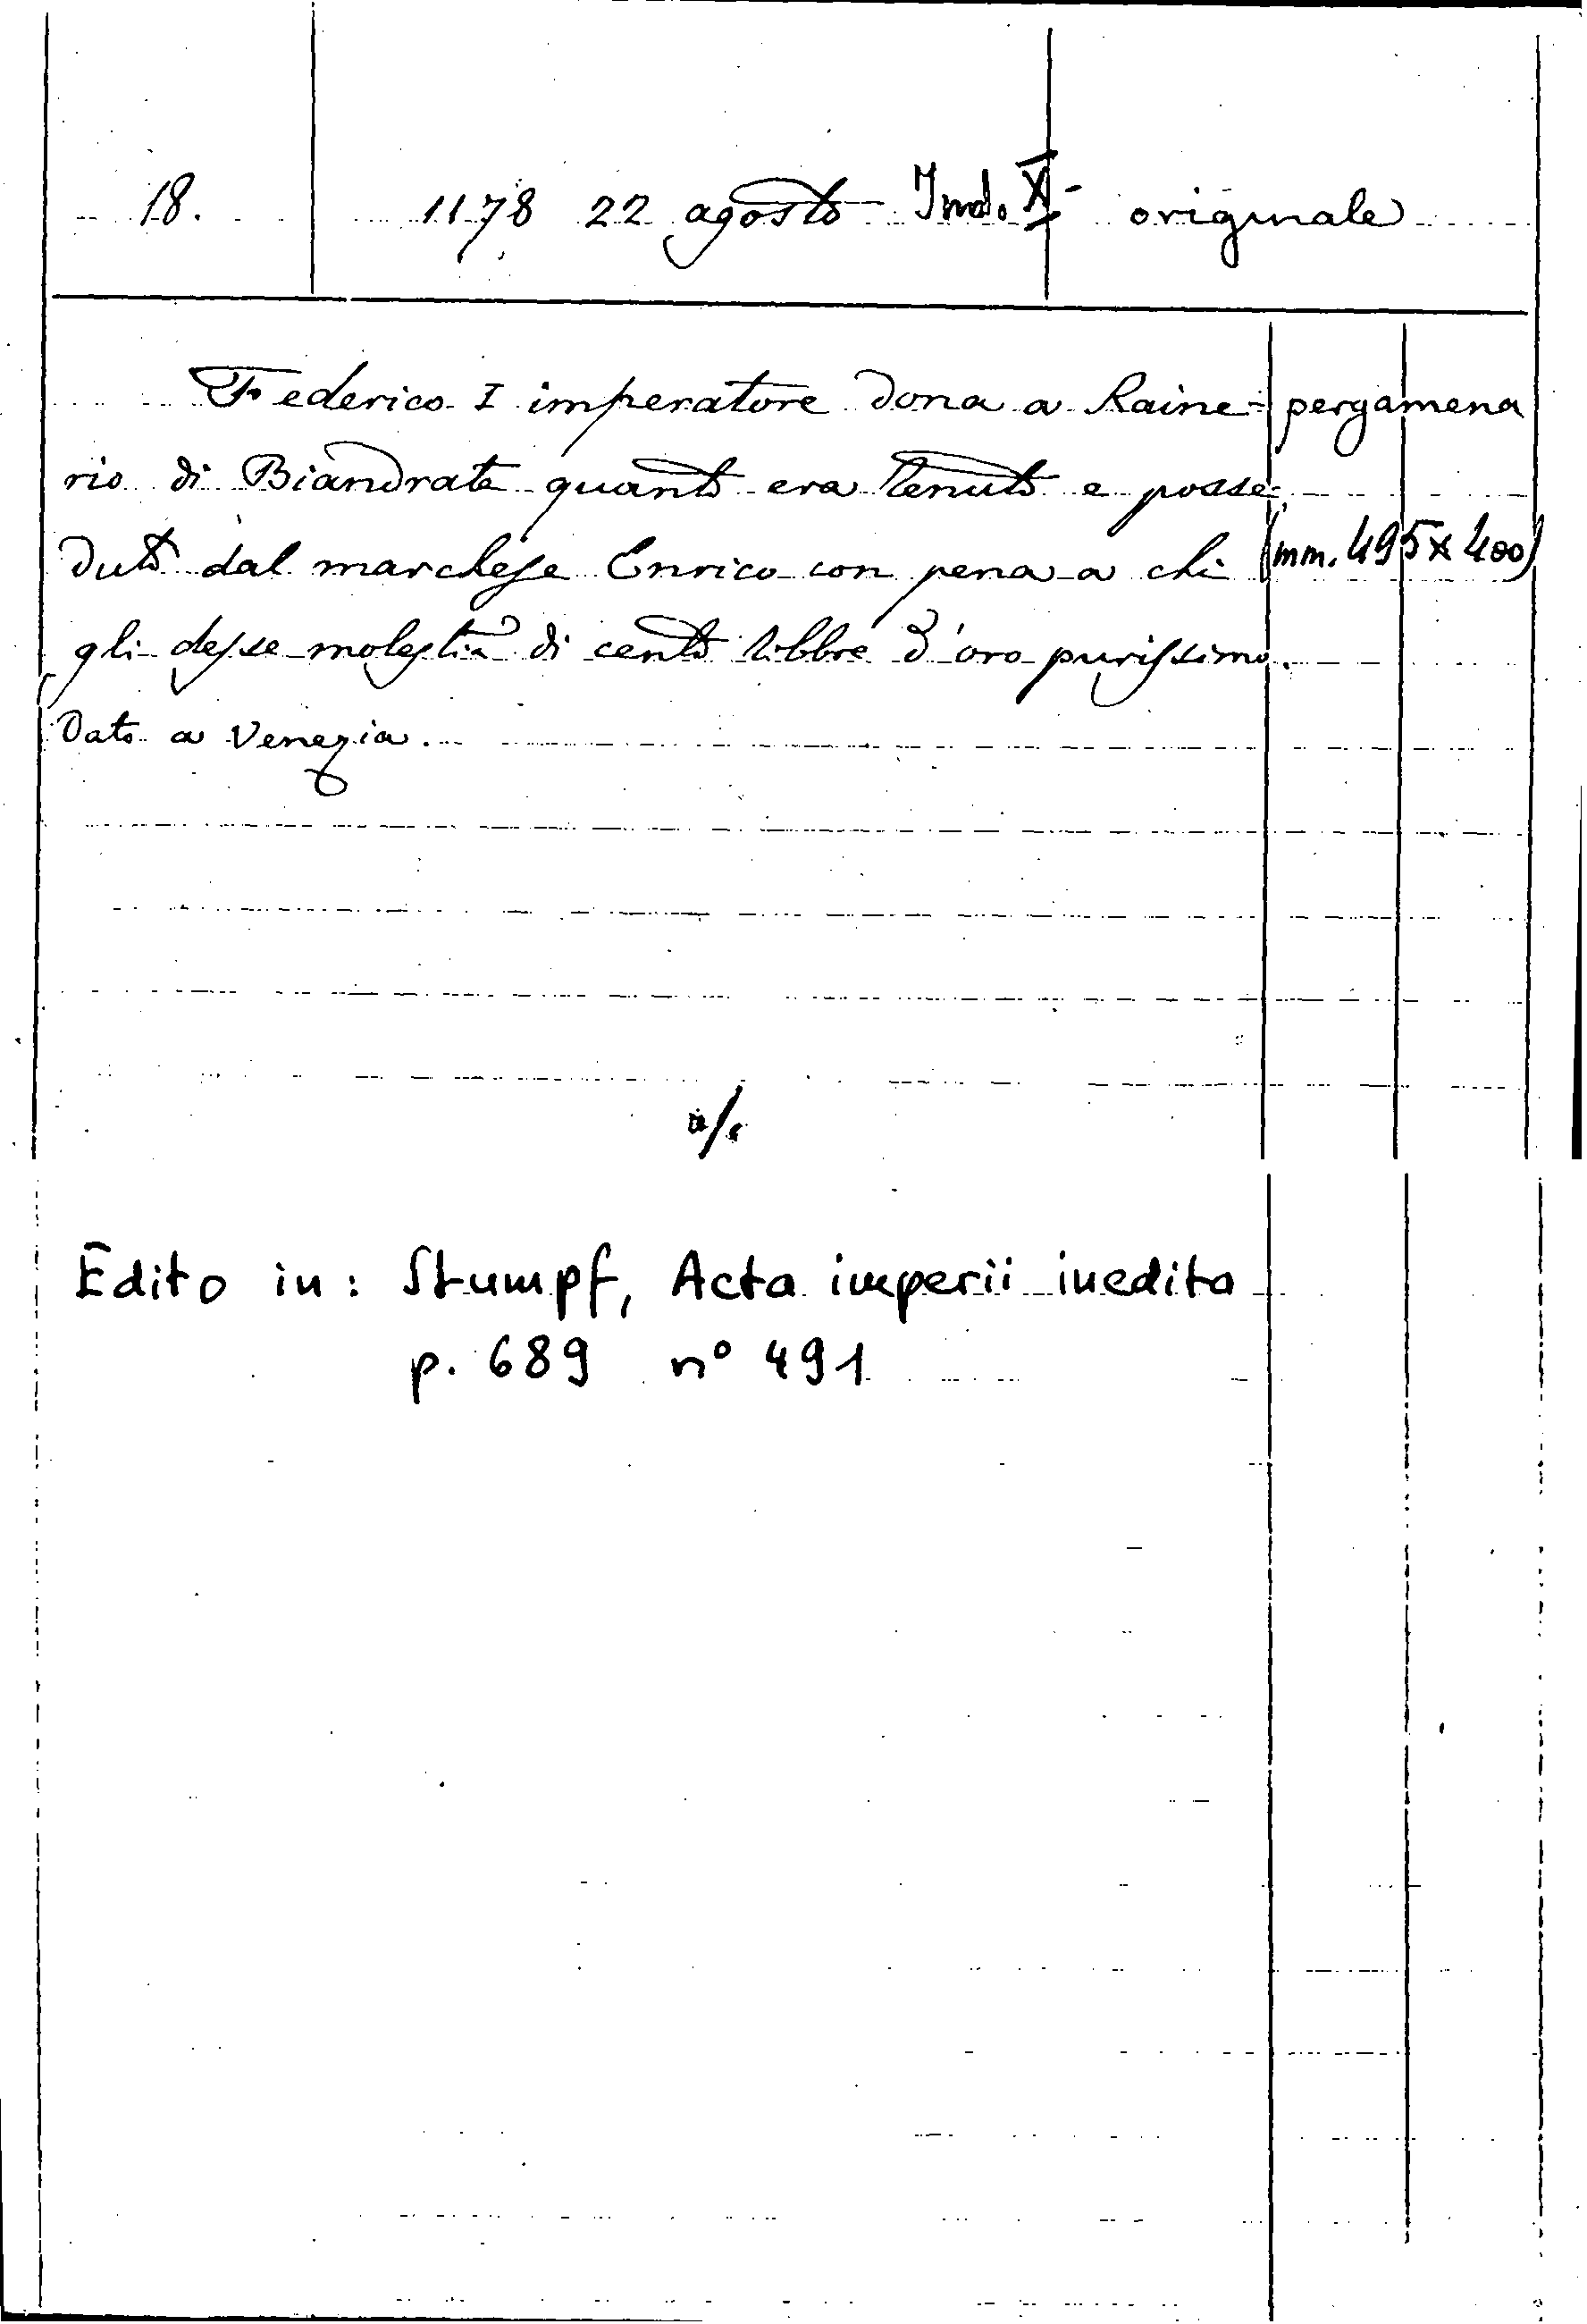 18. 1178 22 agosto Ind. XI originale
Federico I imperatore dona a Raine= pergamena
rio di Biandrate quanto era tenuto e posse=
duto dal marchese Enrico con pena a chi (mm. 495 x 400)
gli desse molestia di cento libbre d'oro purissimo.
Dato a Venezia.
Edito in: Stumpf, Acta imperii inedita
p. 689 n° 491